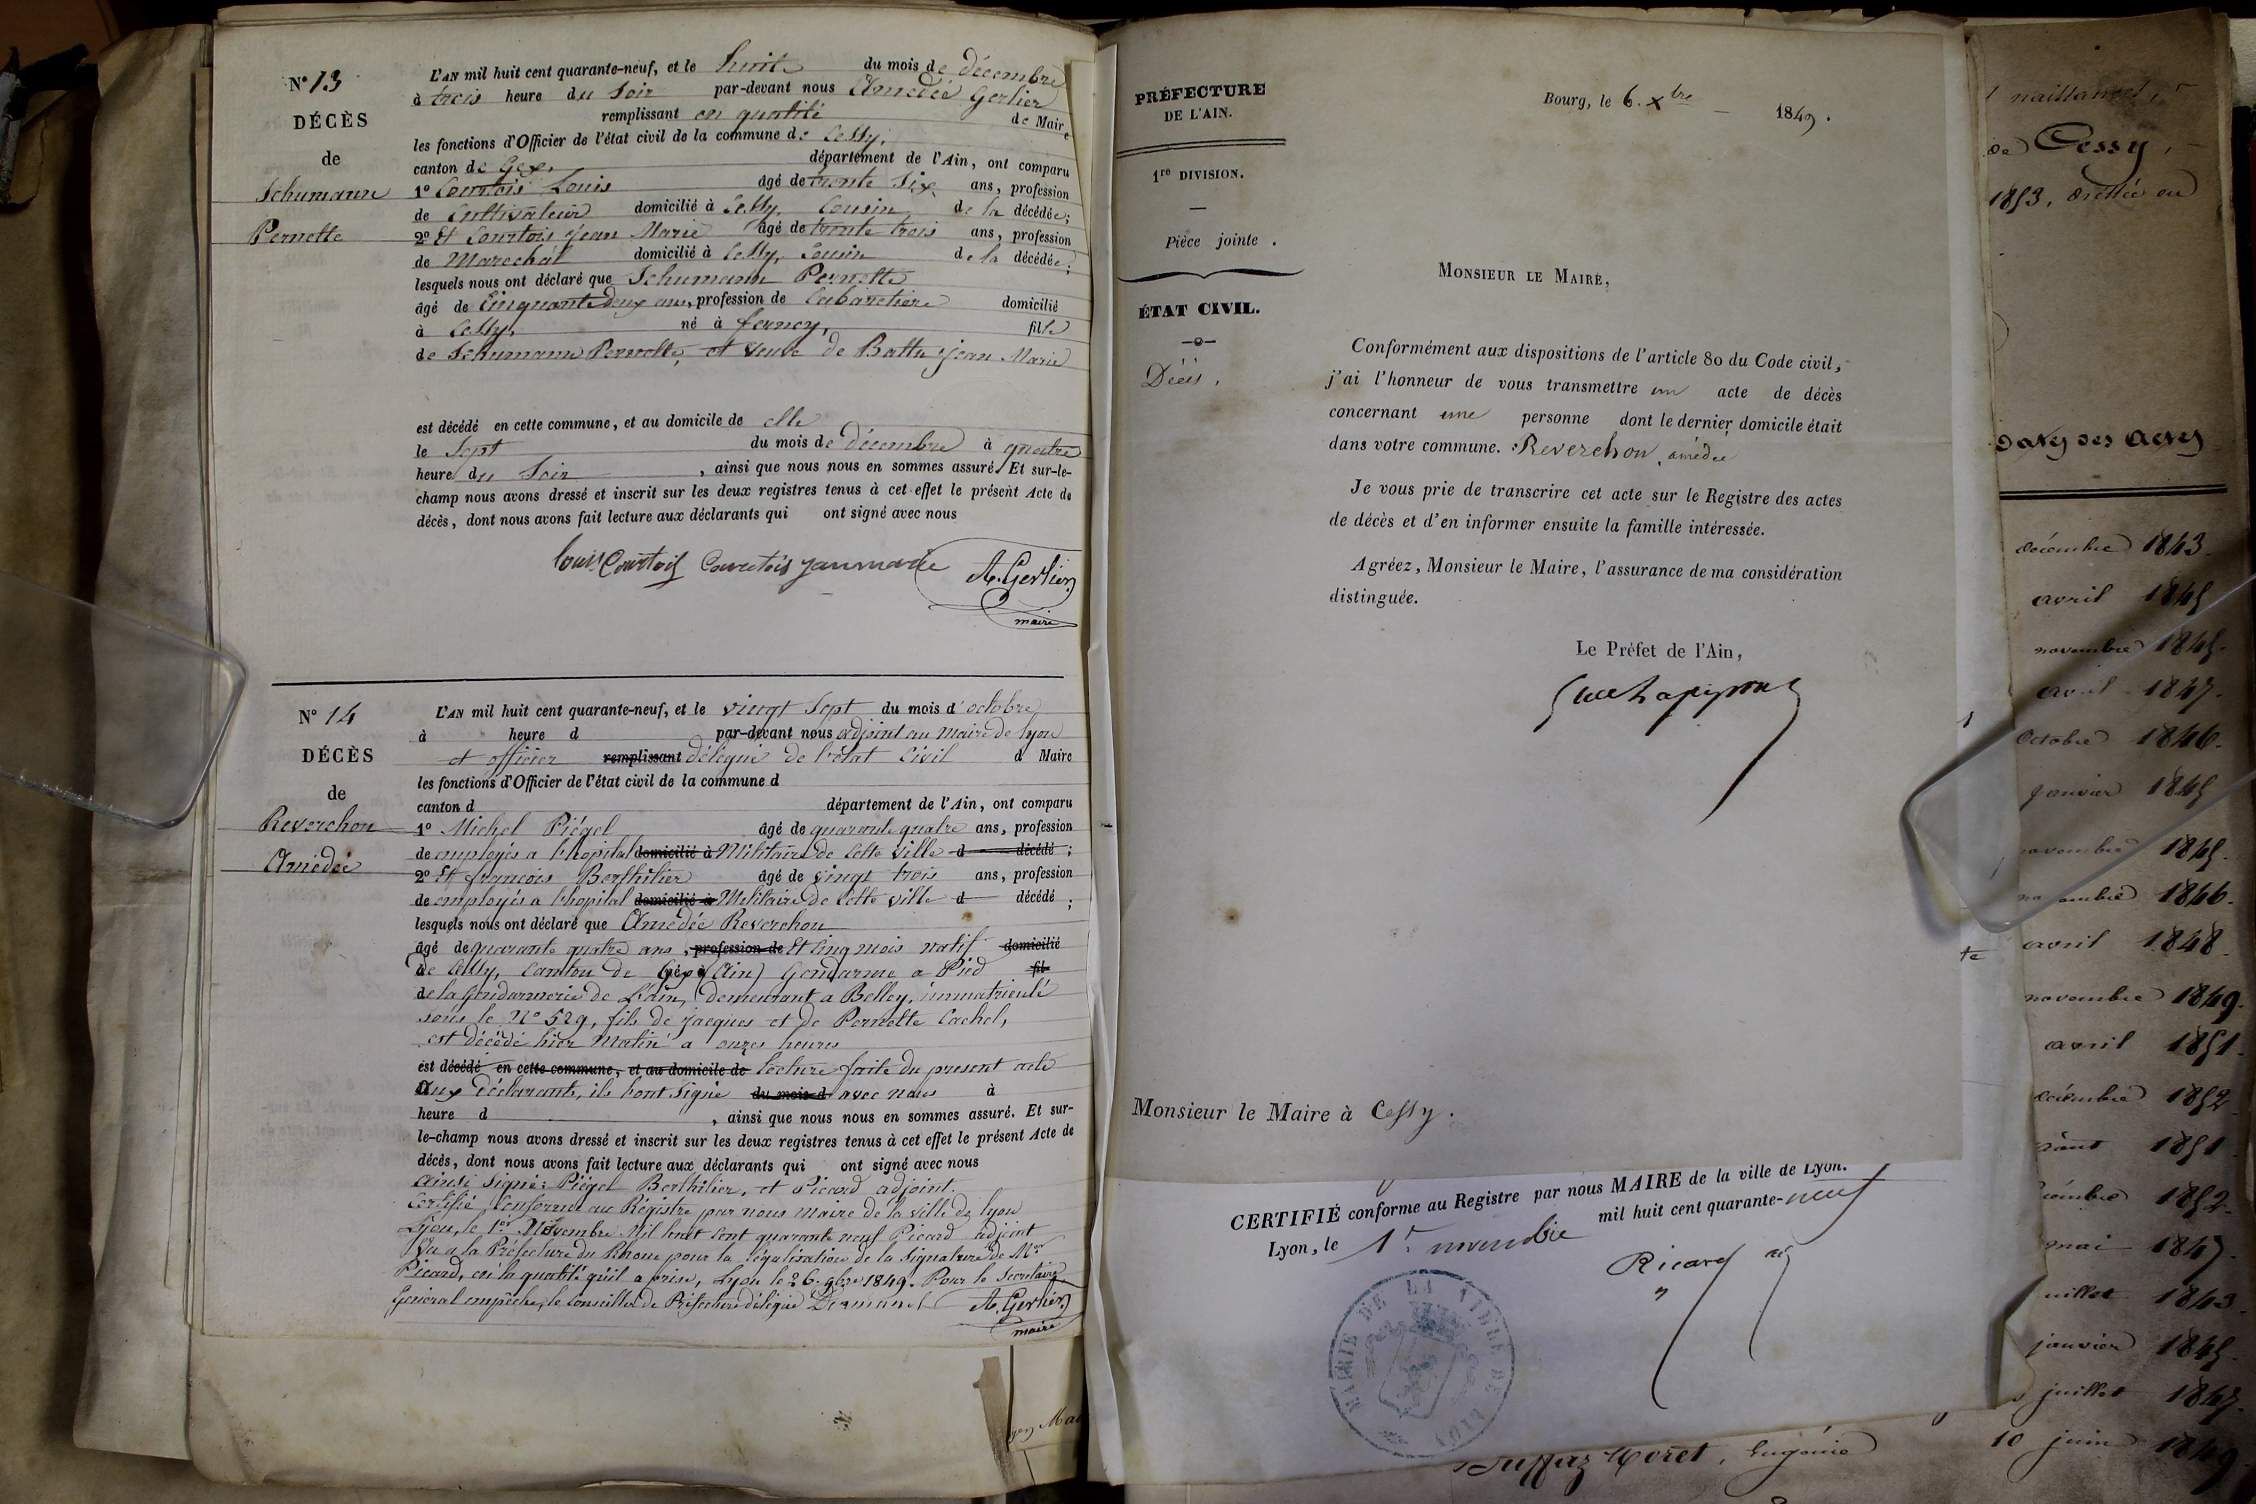 N° 13
DÉCÈS
de
Schumann
Pernette
L'AN mil huit cent quarante-neuf, et le huit du mois de décembre
à trois heure du soir par-devant nous Amédée Gerlier
remplissant en qualité de Maire
les fonctions d'Officier de l'état civil de la commune de Cessy,
canton de Gex, département de l'Ain, ont comparu
1° Courtois Louis âgé de trente six ans, profession
de Cultivateur domicilié à Cessy, Cousin de la décédée;
2° Et Courtois Jean Marie âgé de trente trois ans, profession
de Marechal domicilié à Cessy, Cousin de la décédée;
lesquels nous ont déclaré que Schumann Pernette
âgé de Cinquante deux ans, profession de Cabaretière domicilié
à Cessy, né à ferney, fille
de Schumann Pernette, et veuve de Battu Jean Marie
est décédé en cette commune, et au domicile de elle
le Sept du mois de décembre à quatre
heure du Soir, ainsi que nous nous en sommes assuré. Et sur-le-
champ nous avons dressé et inscrit sur les deux registres tenus à cet effet le présent Acte de
décès, dont nous avons fait lecture aux déclarants qui ont signé avec nous
Louis Courtois Courtois jeanmarie A. Gerlier
maire
N° 14
DÉCÈS
de
Reverchon
Amédée
L'AN mil huit cent quarante-neuf, et le vingt Sept du mois d'octobre
à heure d par-devant nous adjoint au Maire de Lyon
et officier remplissant délégué de l'état Civil d Maire
les fonctions d'Officier de l'état civil de la commune d
canton d département de l'Ain, ont comparu
1° Michel Piégel âgé de quarante quatre ans, profession
de employés a l'hopital domicilié à Militaire de Cette ville d décédé;
2° Et françois Berthilier âgé de vingt trois ans, profession
de employés a l'hopital domicilié à Militaire de Cette ville d décédé;
lesquels nous ont déclaré que Amédée Reverchon
âgé de quarante quatre ans, profession de Et Cinq mois natif domicilié
de Cessy, Canton de Gex (Ain) Gendarme a Pied fil
de la Gendarmerie de L'ain, demeurant a Belley, immatriculé
sous le N° 529, fils de Jacques et de Pernette Cachel,
est décédé hier Matin a onzes heures
est décédé en cette commune, et au domicile de Lecture faite du present acte
aux déclarants, ils l'ont Signé du mois d avec nous à
heure d, ainsi que nous nous en sommes assuré. Et sur-
le-champ nous avons dressé et inscrit sur les deux registres tenus à cet effet le présent Acte de
décès, dont nous avons fait lecture aux déclarants qui ont signé avec nous
ainsi Signé: Piégel Berthilier, et Picard adjoint.
Certifié Conforme au Régistre par nous maire de la ville de Lyon
Lyon, le 1er Novembre Mil huit Cent quarante neuf Picard adjoint
Vu a la Préfecture du Rhone pour la légalisation de la Signature de Mr
Picard, en la qualité qu'il a prise, Lyon le 26 9bre 1849. Pour le Secretaire
General empêché, le Conseiller de Préfecture délégué A. Gerlier
maire
PRÉFECTURE
DE L'AIN.
1re DIVISION.
Pièce jointe.
ÉTAT CIVIL.
Décès,
Bourg, le 6. Xbre 1849.
MONSIEUR LE MAIRE,
Conformément aux dispositions de l'article 80 du Code civil,
j'ai l'honneur de vous transmettre un acte de décès
concernant une personne dont le dernier domicile était
dans votre commune. Reverchon, amédée
Je vous prie de transcrire cet acte sur le Registre des actes
de décès et d'en informer ensuite la famille intéressée.
Agréez, Monsieur le Maire, l'assurance de ma considération
distinguée.
Le Préfet de l'Ain,
Monsieur le Maire à Cessy.
CERTIFIÉ conforme au Registre par nous MAIRE de la ville de Lyon.
Lyon, le 1r. novembre mil huit cent quarante-neuf
Picard adj
MAIRIE DE LA VILLE DE LYON
Moret, Eugénie
de Cessy,
1853,
Dates des actes
décembre 1843.
avril 1845
novembre 1845.
avril 1847.
Octobre 1846.
Janvier 1845
novembre 1845.
1846.
avril 1848.
novembre 1849.
avril 1851.
décembre 1852
1851
1852.
mai 1847.
juillet 1843.
janvier 1845.
juillet 1847.
10 juin 1849.